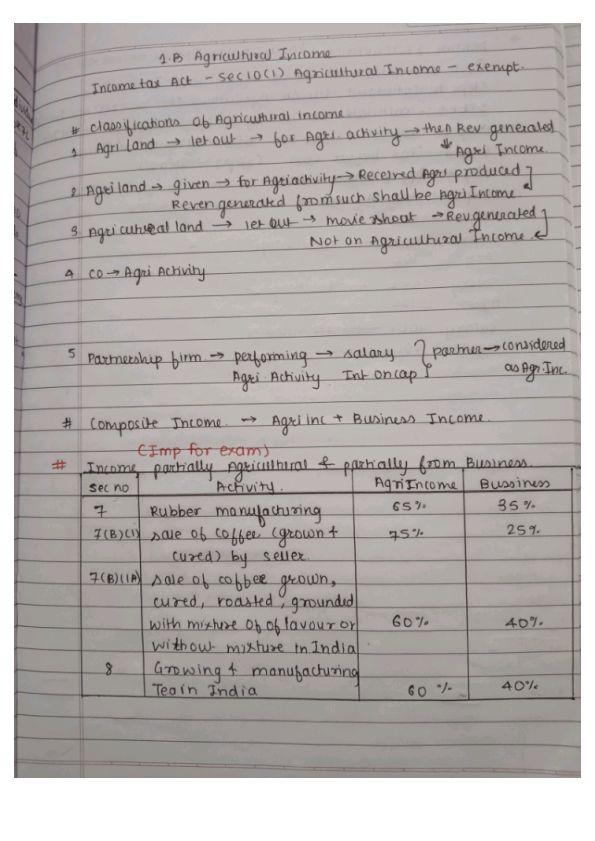 1.B Agricultural Income
Income tax Act - Sec 10(1) Agricultural Income - exempt.
# Classifications of Agricultural income
1 Agri land → let out → for Agri. activity → then Rev generated
Agri Income.
2 Agri land → given → for Agri activity → Received Agri produced
Reven generated from such shall be Agri Income
3 Agricultureal land → let out → movie shoot → Rev generated
Not on Agricultural Income.
4 CO → Agri Activity
5 Partnership firm → performing → salary } partner → considered
Agri Activity Int on cap as Agr. Inc.
# Composite Income. → Agri Inc + Business Income.
(Imp for exam)
# Income partially Agricultural & partially from Bussiness.
Sec no Activity. Agri Income Bussiness
7 Rubber manufacturing 65% 35%
7(B)(1) sale of coffee (grown + 75% 25%
cured) by seller.
7(B)(1A) sale of coffee grown,
cured, roasted, grounded
with mixture of of lavour or 60% 40%
without mixture in India
8 Growing + manufacturing
Tea in India 60 % 40%